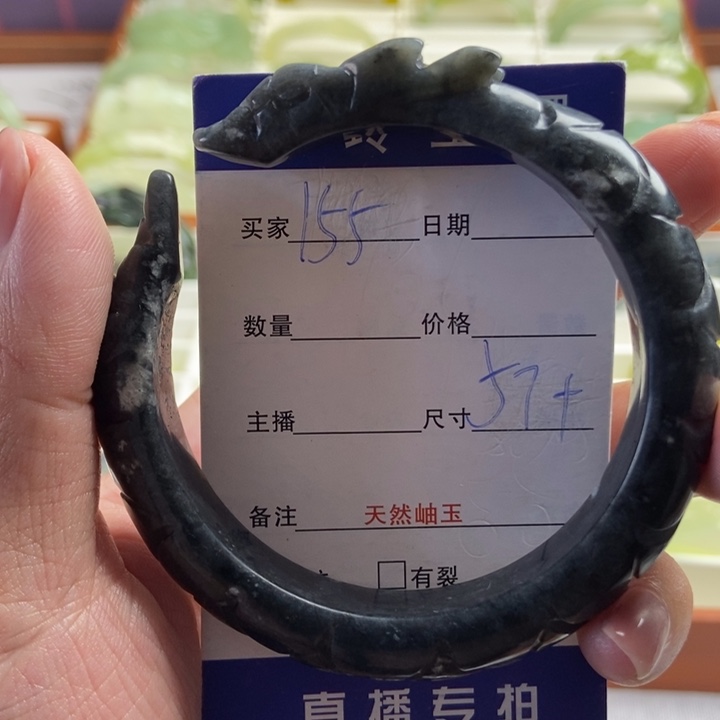 买家 155 日期
数量 价格
主播 尺寸 57+
备注 天然岫玉
□有裂
直播专拍